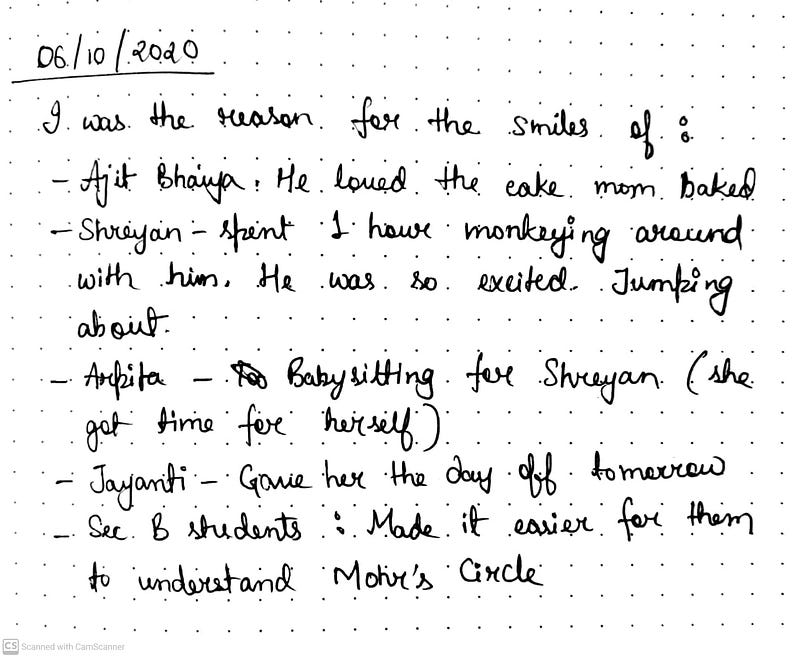 06/10/2020
I was the reason for the smiles of :
- Ajit Bhaiya. He loved the cake mom baked
- Shreyan - spent 1 hour monkeying around
with him. He was so excited. Jumping
about.
- Arpita - Babysitting for Shreyan (she
got time for herself)
- Jayanti - Gave her the day off tomorrow
- Sec B students : Made it easier for them
to understand Mohr's Circle
CS Scanned with CamScanner